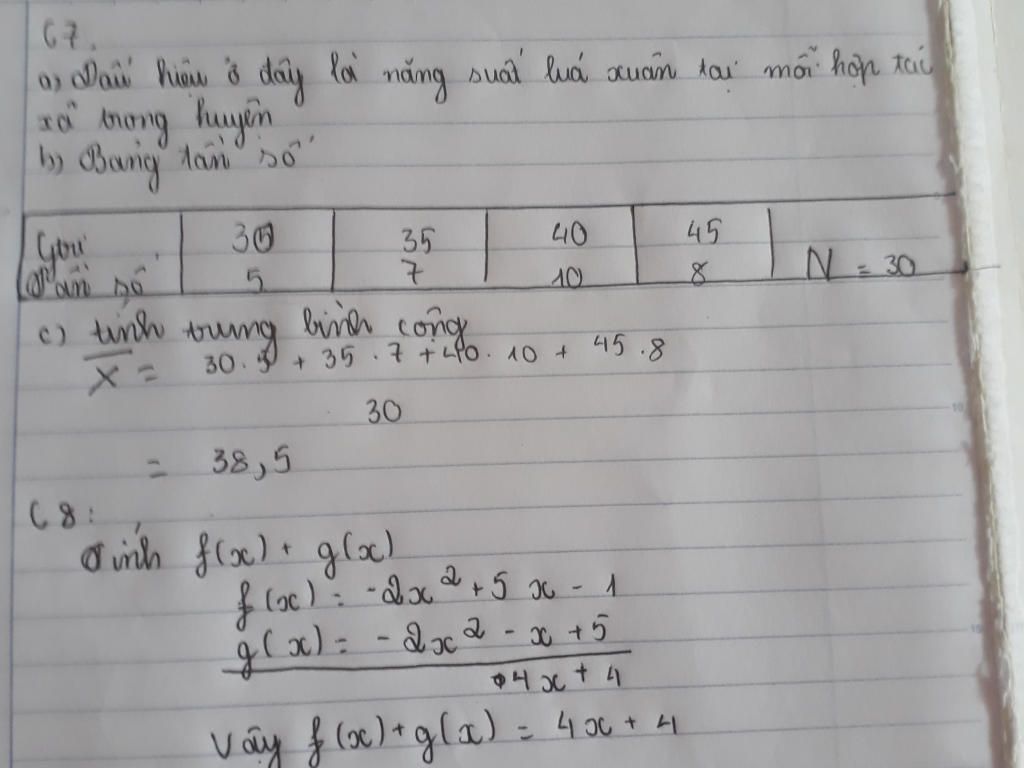 C7.
a) Dấu hiệu ở đây là năng suất luá xuân tại mỗi hợp tác
xã trong huyện
b) Bảng tần số
30 35 40 45
Tần số 5 7 10 8 N = 30
c) tính trung bình cộng
X = 30.5 + 35.7 + 40.10 + 45.8
30
= 38,5
C8:
Tính f(x) + g(x)
f(x) = -2x² + 5x - 1
g(x) = -2x² - x + 5
4x + 4
Vậy f(x) + g(x) = 4x + 4